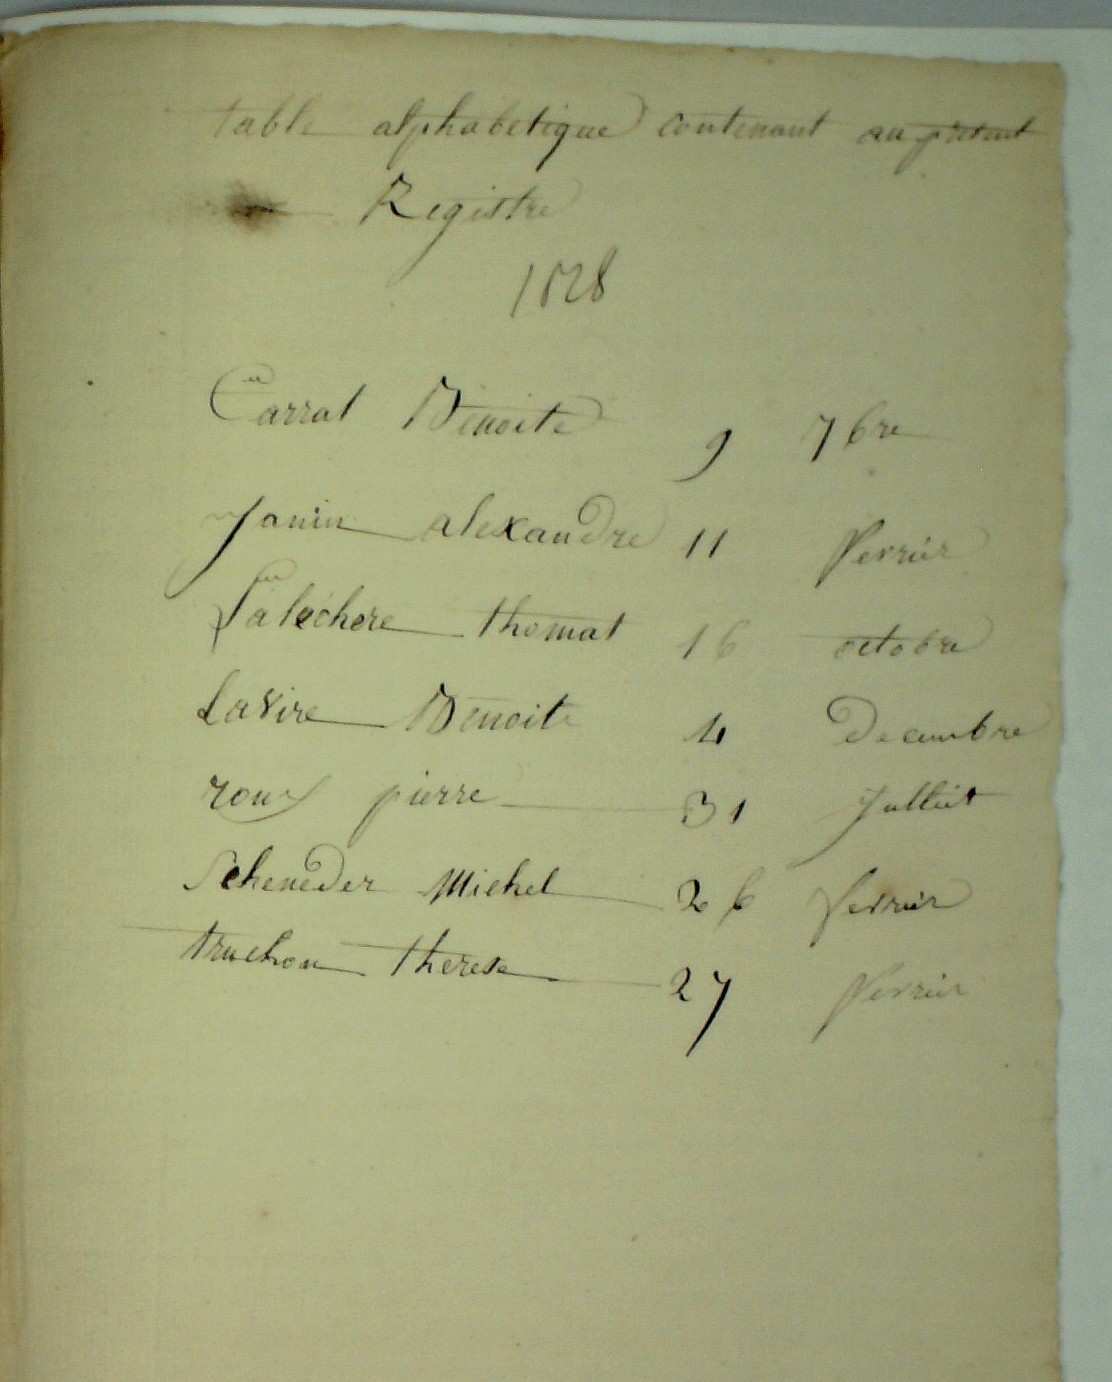 table alphabetique contenant au present
Registre
1828
Carrat Benoite 9 7bre
Janin alexandre 11 fevrier
Lalechere thomat 16 octobre
Lavire Benoite 4 Decembre
roux pierre 31 Julliet
Scheneder Michel 26 fevrier
truchon therese 27 fevrier